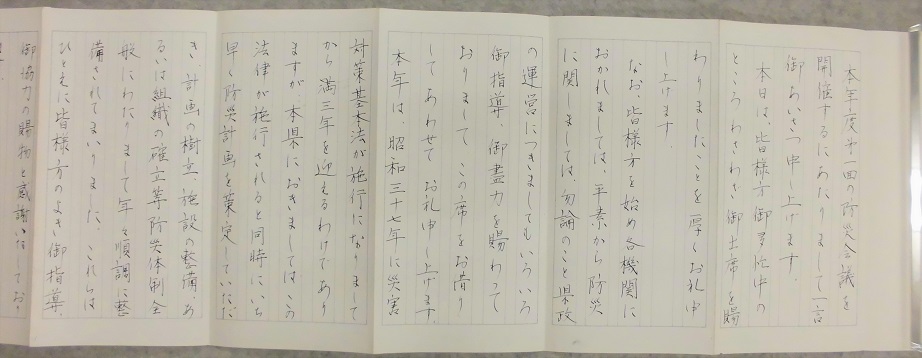 本年度第一回の防災会議を
開催するにあたりまして一言
御あいさつ申し上げます。
本日は、皆様方御多忙中の
ところわざわざ御出席を賜
わりましたことを厚くお礼申
し上げます。
なお、皆様方を始め各機関に
おかれましては、平素から防災
に関しましては、勿論のこと県政
の運営につきましてもいろいろ
御指導、御盡力を賜わって
おりましてこの席をお借り
してあわせてお礼申し上げます。
本年は、昭和三十七年に災害
対策基本法が施行になりまして
から満三年を迎えるわけであり
ますが、本県におきましてはこの
法律が施行されると同時にいち
早く防災計画を策定していただ
き、計画の樹立、施設の整備、あ
るいは組織の確立等防災体制全
般にわたりまして年々順調に整
備されてまいりました。これらは
ひとえに皆様方のよき御指導、
御協力の賜物と感謝いたしており